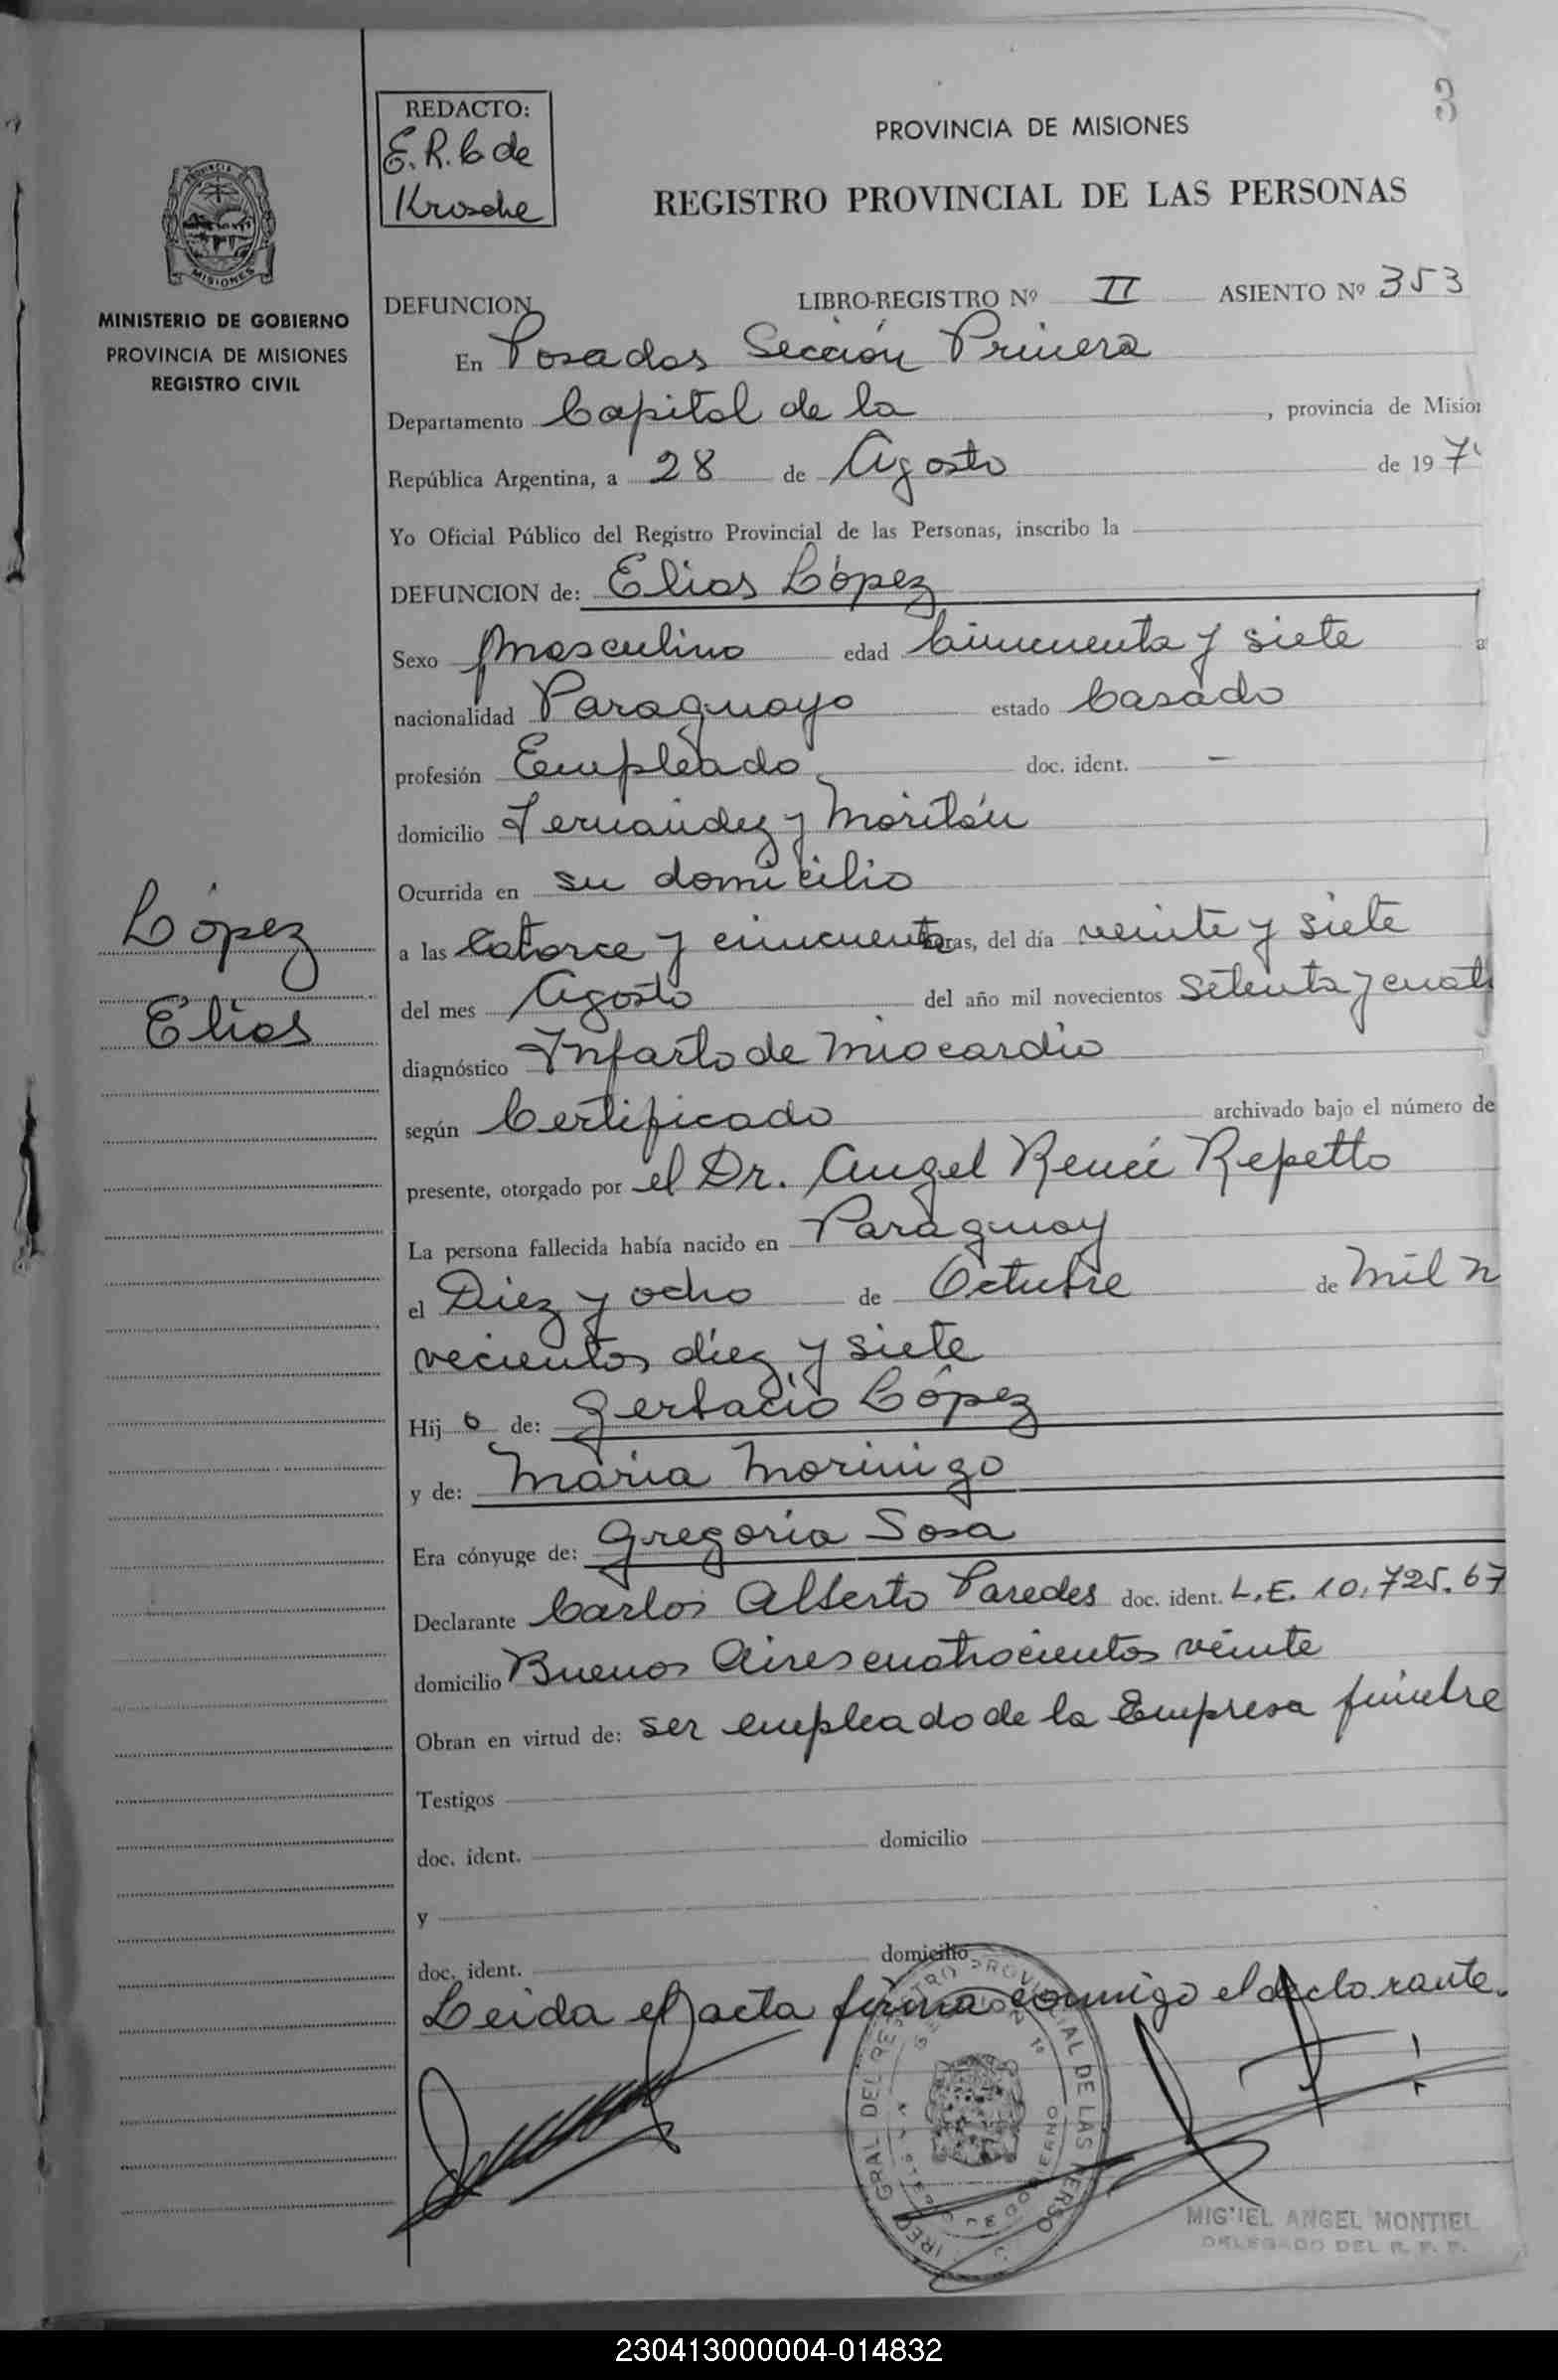 3
REDACTO:
E. R. C de
Krusche
PROVINCIA DE MISIONES
REGISTRO PROVINCIAL DE LAS PERSONAS
MISIONES
MINISTERIO DE GOBIERNO
PROVINCIA DE MISIONES
REGISTRO CIVIL
DEFUNCION
LIBRO-REGISTRO Nº II ASIENTO Nº 353
En Posadas Sección Primera
Departamento Capital de la , provincia de Mision
República Argentina, a 28 de Agosto de 197
Yo Oficial Público del Registro Provincial de las Personas, inscribo la
DEFUNCION de: Elias López
Sexo Masculino edad Cincuenta y siete a
nacionalidad Paraguayo estado Casado
profesión Empleado doc. ident. —
domicilio Fernández y Moritán
Ocurrida en su domicilio
López
Elías
a las Catorce y cincuenta horas, del día veinte y siete
del mes Agosto del año mil novecientos setenta y cuat
diagnóstico Infarto de Miocardio
según Certificado archivado bajo el número de
presente, otorgado por el Dr. Angel René Repetto
La persona fallecida había nacido en Paraguay
el Diez y ocho de Octubre de Mil n
vecientos diez y siete
Hijo de: Gerbacio López
y de: María Morinigo
Era cónyuge de: Gregoria Sosa
Declarante Carlos Alberto Paredes doc. ident. L.E. 10.725.67
domicilio Buenos Aires cuatrocientos veinte
Obran en virtud de: ser empleado de la Empresa fúnebre
Testigos
doc. ident. domicilio
y
doc. ident. domicilio
Leida el acta firma conmigo el declarante.
MIGUEL ANGEL MONTIEL
DELEGADO DEL R. P. P.
230413000004-014832